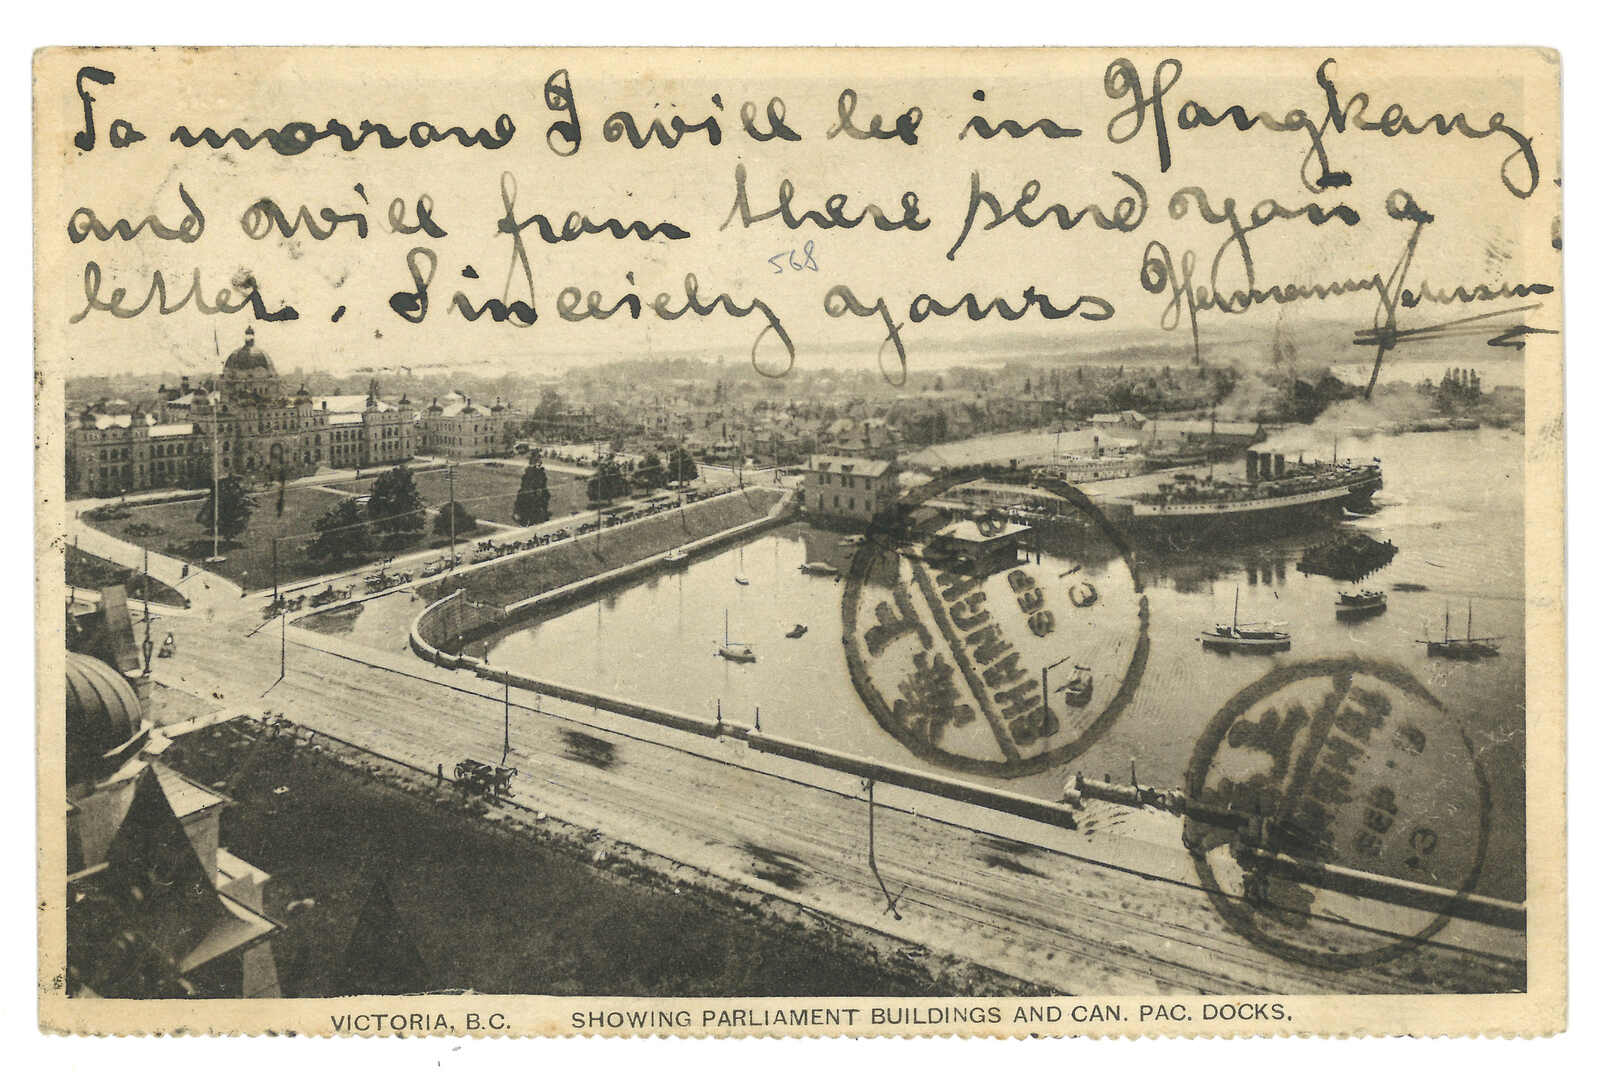 To morrow I will be in Hongkong
and will from there send you a
letter. Sincerely yours Hermann
568
SHANGHAI
SEP
13
SEP
13
VICTORIA, B.C. SHOWING PARLIAMENT BUILDINGS AND CAN. PAC. DOCKS.